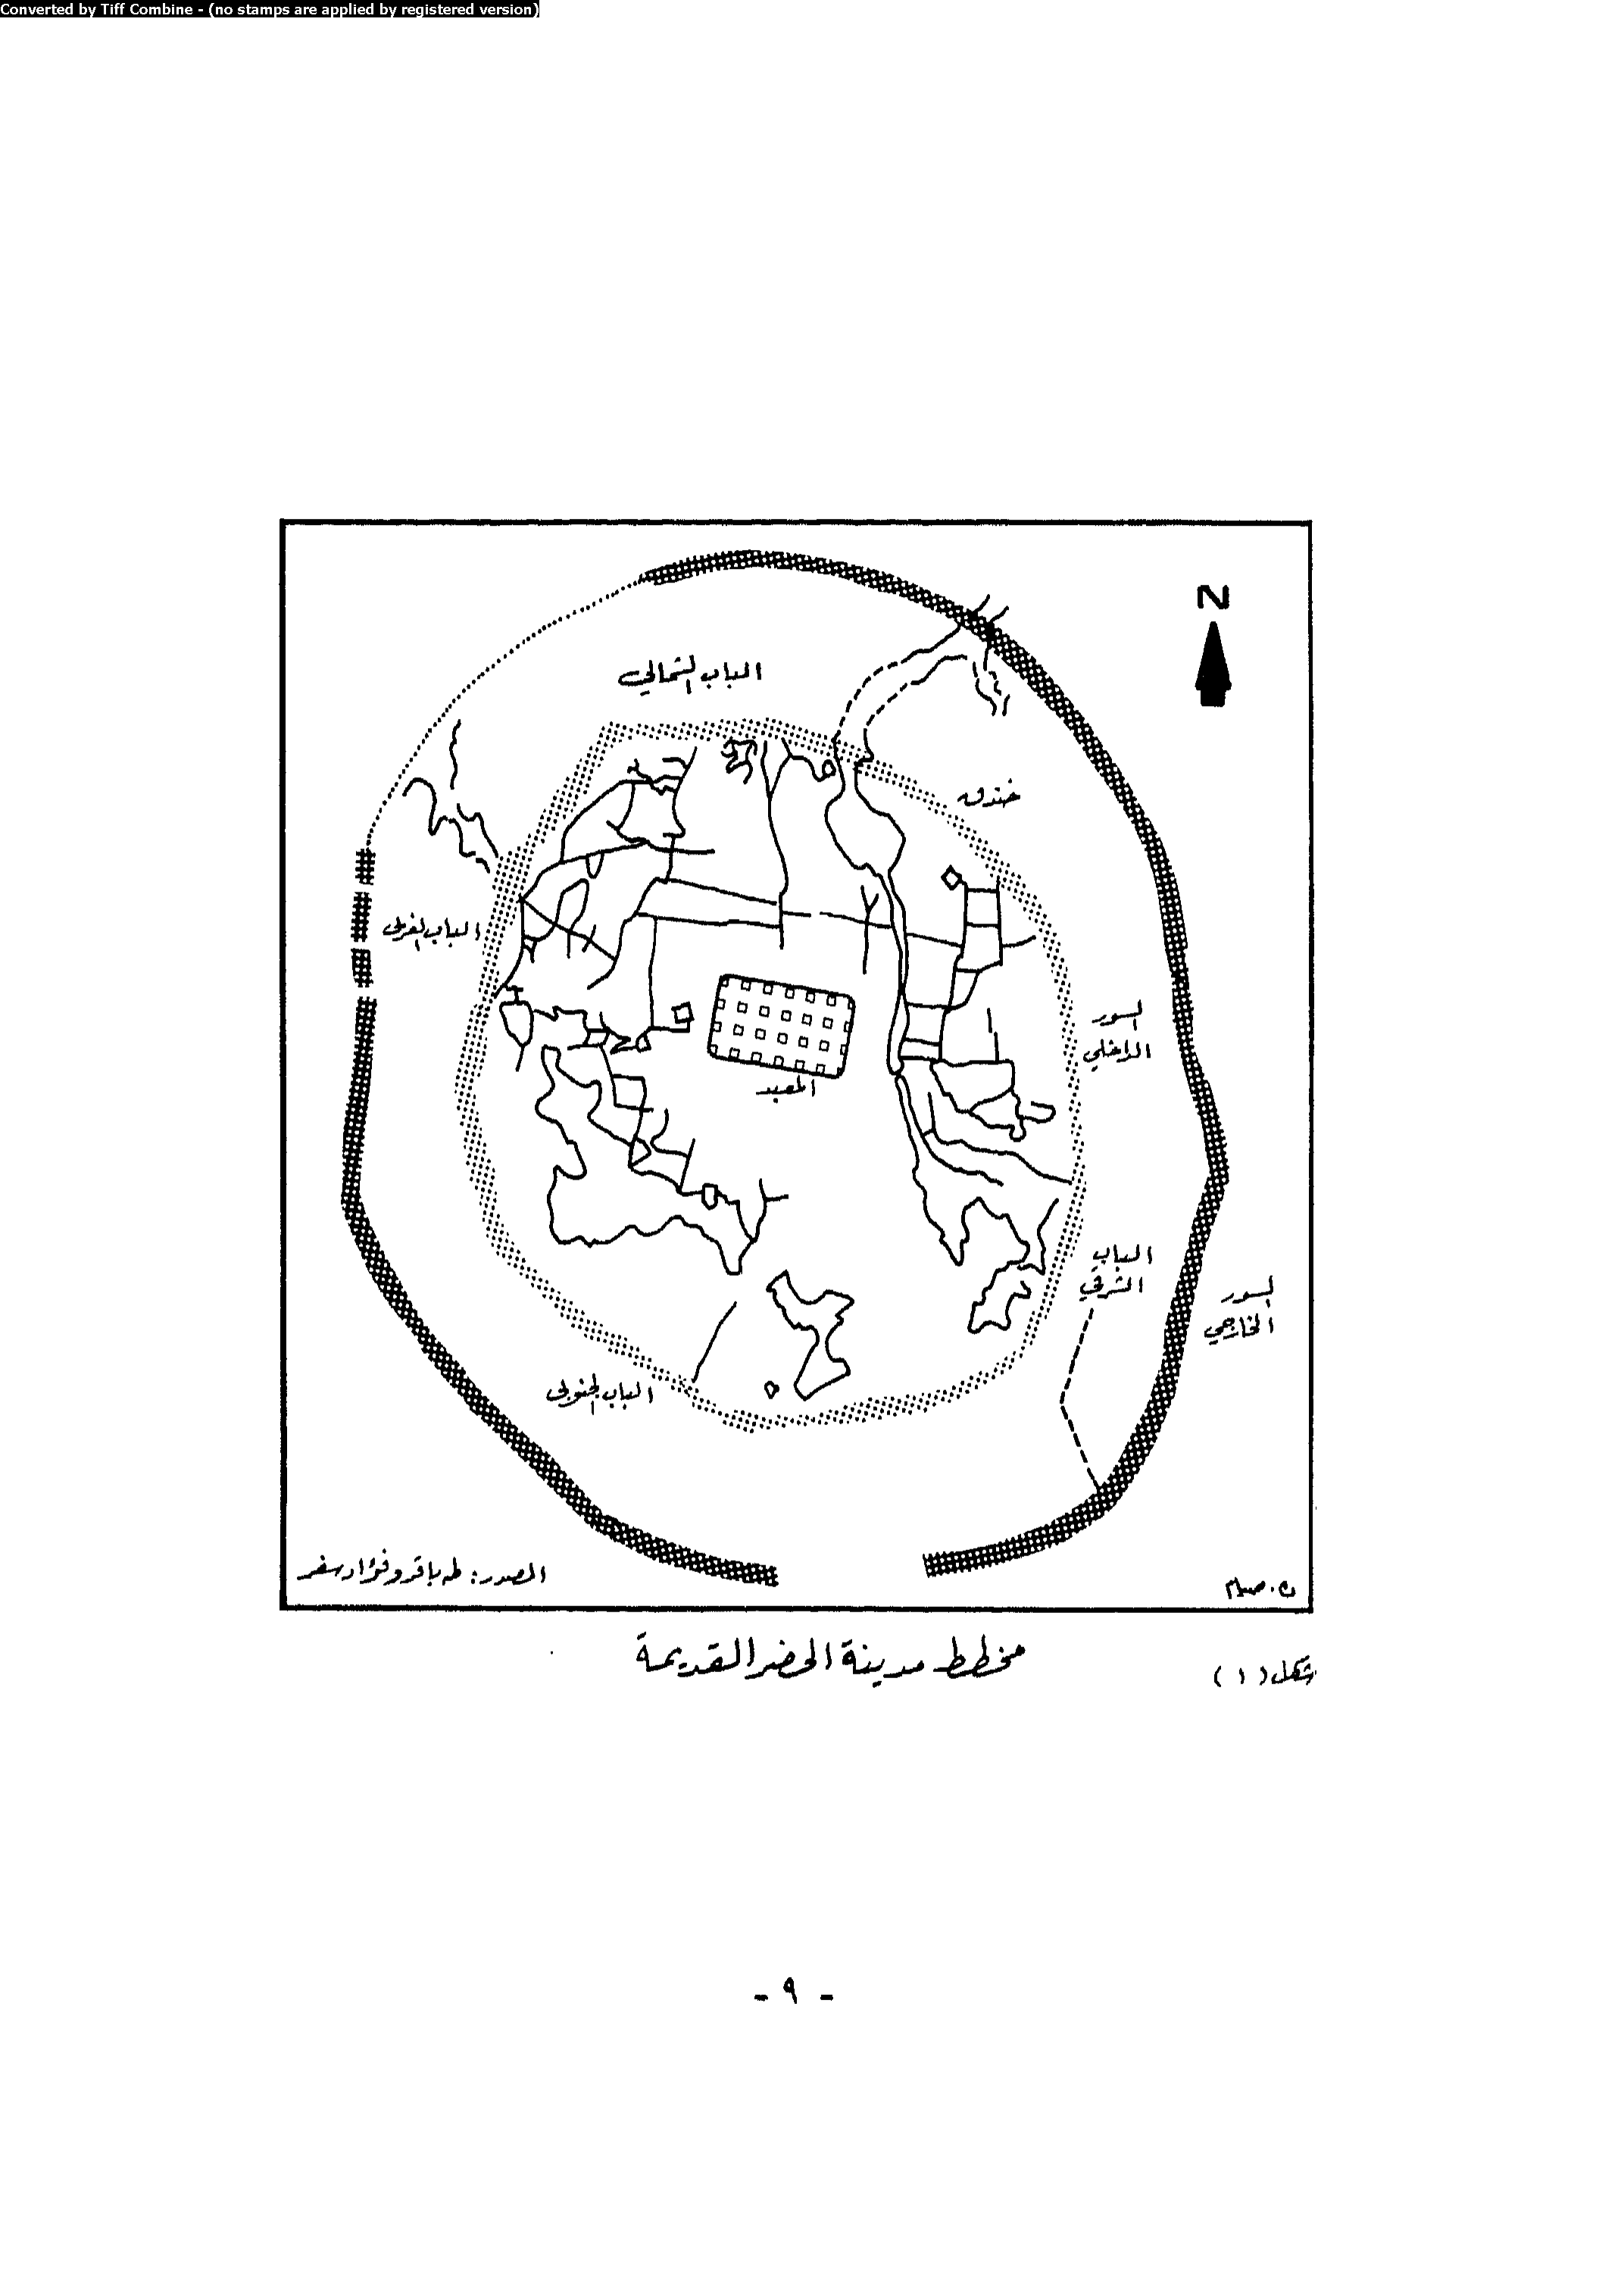 Converted by Tiff Combine - (no stamps are applied by registered version)
N
الباب الشمالي
خندق
الباب الغربي
السور
الداخلي
المعبد
الباب
الشرقي
السور
الخارجي
الباب الجنوبي
المصدر: طه باقر وفؤاد سفر
مخطط مدينة الحضر القديمة
شكل (١)
- ٩ -